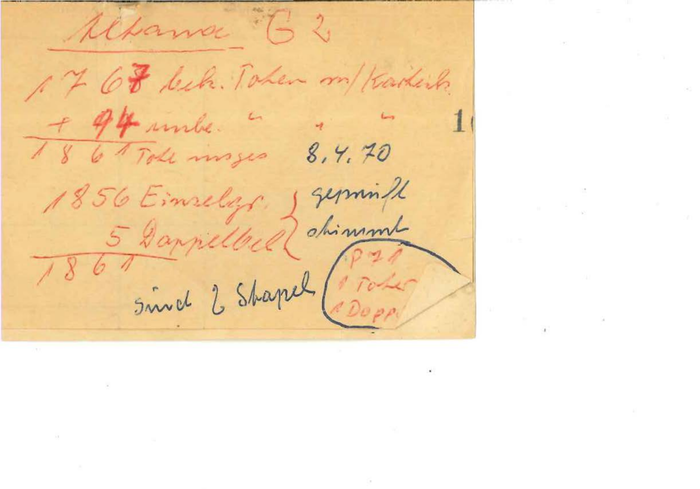 G 2
1767 bek. Toten m/Kartenk.
+ 94 unbe. " " "
1861 Tote insges 8.4.70
1856 Einzelgr. geprüft
5 Doppelbel stimmt
1861
1 Toter
1 Dopp
sind 2 Stapel